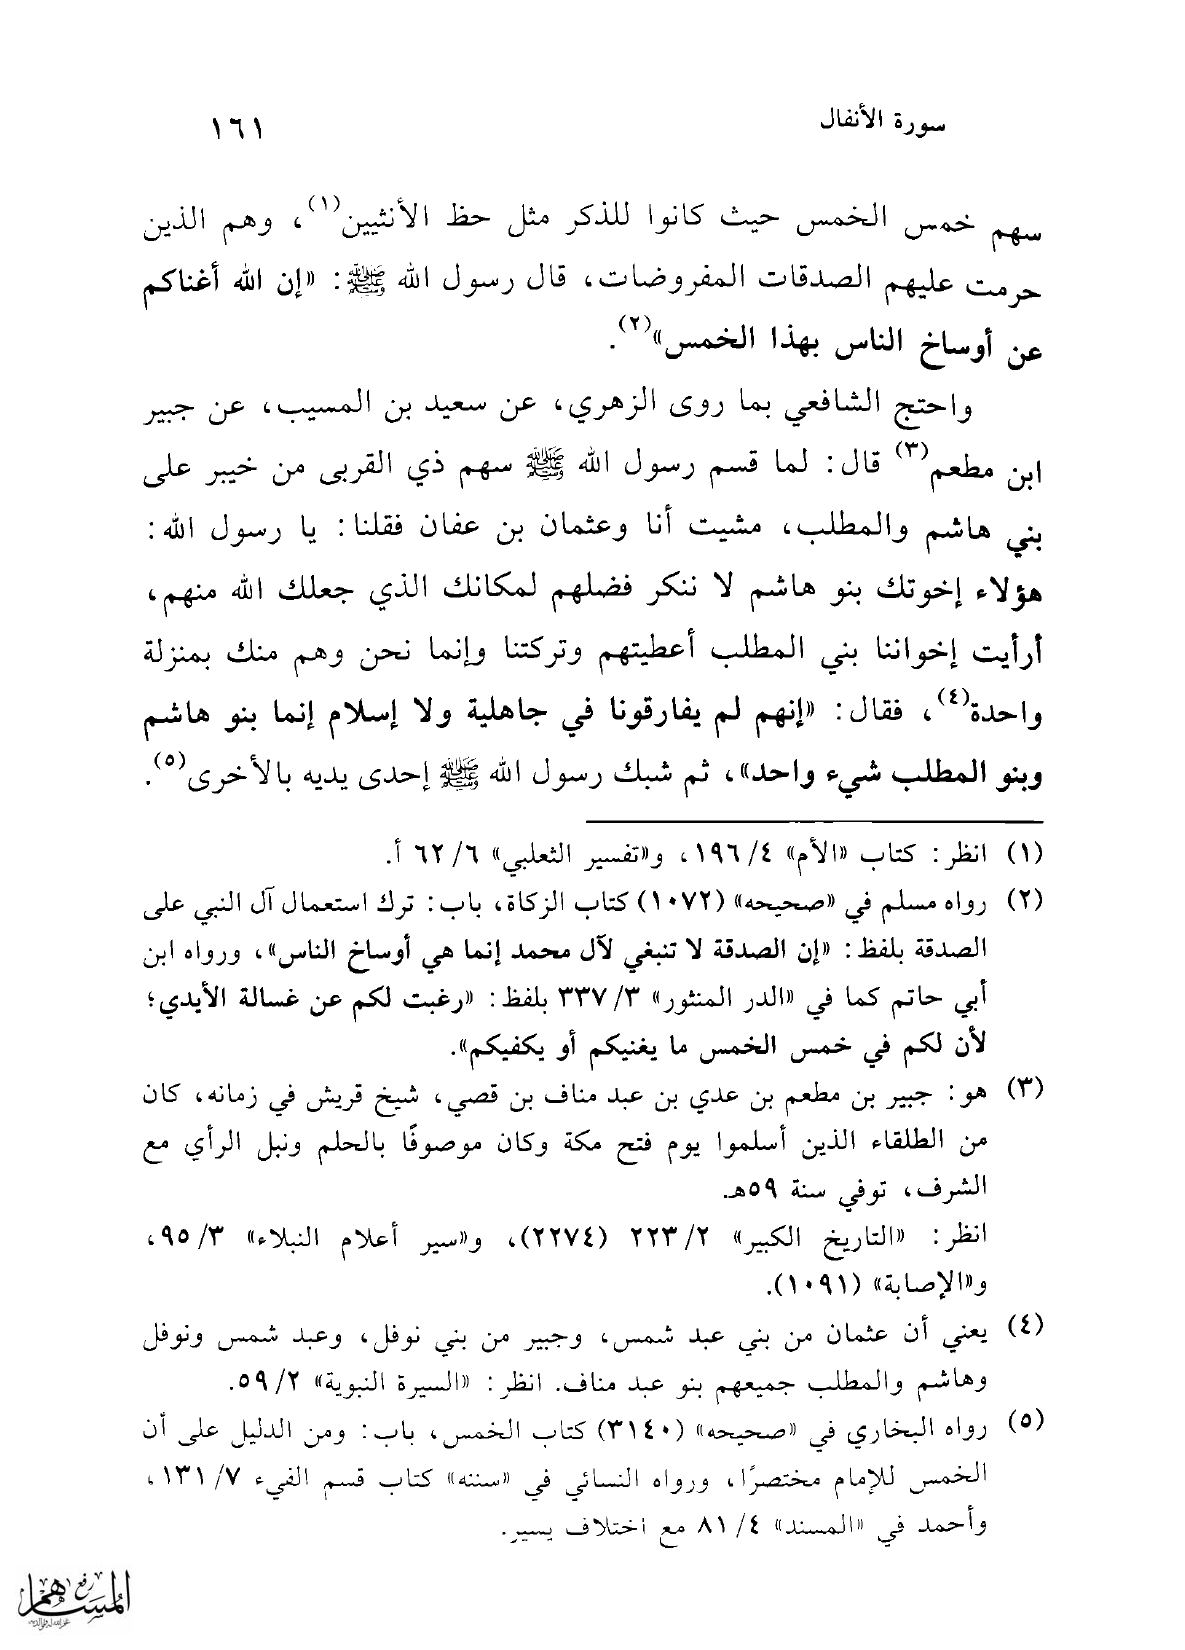 سورة الأنفال
١٦١
سهم خمس الخمس حيث كانوا للذكر مثل حظ الأنثيين(١)، وهم الذين
حرمت عليهم الصدقات المفروضات، قال رسول الله ﷺ: «إن الله أغناكم
عن أوساخ الناس بهذا الخمس»(٢).
واحتج الشافعي بما روى الزهري، عن سعيد بن المسيب، عن جبير
ابن مطعم(٣) قال: لما قسم رسول الله ﷺ سهم ذي القربى من خيبر على
بني هاشم والمطلب، مشيت أنا وعثمان بن عفان فقلنا: يا رسول الله:
هؤلاء إخوتك بنو هاشم لا ننكر فضلهم لمكانك الذي جعلك الله منهم،
أرأيت إخواننا بني المطلب أعطيتهم وتركتنا وإنما نحن وهم منك بمنزلة
واحدة(٤)، فقال: «إنهم لم يفارقونا في جاهلية ولا إسلام إنما بنو هاشم
وبنو المطلب شيء واحد»، ثم شبك رسول الله ﷺ إحدى يديه بالأخرى(٥).
(١) انظر: كتاب «الأم» ٤/ ١٩٦، و«تفسير الثعلبي» ٦/ ٦٢ أ.
(٢) رواه مسلم في «صحيحه» (١٠٧٢) كتاب الزكاة، باب: ترك استعمال آل النبي على
الصدقة بلفظ: «إن الصدقة لا تنبغي لآل محمد إنما هي أوساخ الناس»، ورواه ابن
أبي حاتم كما في «الدر المنثور» ٣/ ٣٣٧ بلفظ: «رغبت لكم عن غسالة الأيدي؛
لأن لكم في خمس الخمس ما يغنيكم أو يكفيكم».
(٣) هو: جبير بن مطعم بن عدي بن عبد مناف بن قصي، شيخ قريش في زمانه، كان
من الطلقاء الذين أسلموا يوم فتح مكة وكان موصوفًا بالحلم ونبل الرأي مع
الشرف، توفي سنة ٥٩هـ.
انظر: «التاريخ الكبير» ٢/ ٢٢٣ (٢٢٧٤)، و«سير أعلام النبلاء» ٣/ ٩٥،
و«الإصابة» (١٠٩١).
(٤) يعني أن عثمان من بني عبد شمس، وجبير من بني نوفل، وعبد شمس ونوفل
وهاشم والمطلب جميعهم بنو عبد مناف. انظر: «السيرة النبوية» ٢/ ٥٩.
(٥) رواه البخاري في «صحيحه» (٣١٤٠) كتاب الخمس، باب: ومن الدليل على أن
الخمس للإمام مختصرًا، ورواه النسائي في «سننه» كتاب قسم الفيء ٧/ ١٣١،
وأحمد في «المسند» ٤/ ٨١ مع اختلاف يسير.
رفع
المساهم